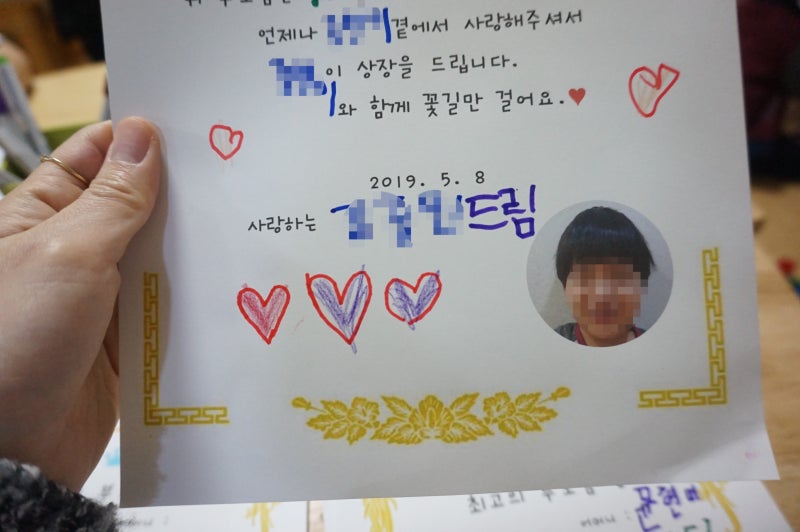 언제나 곁에서 사랑해주셔서
이 상장을 드립니다.
와 함께 꽃길만 걸어요.♥
2019. 5. 8
사랑하는 드림
최고의 부모님
어머니 :